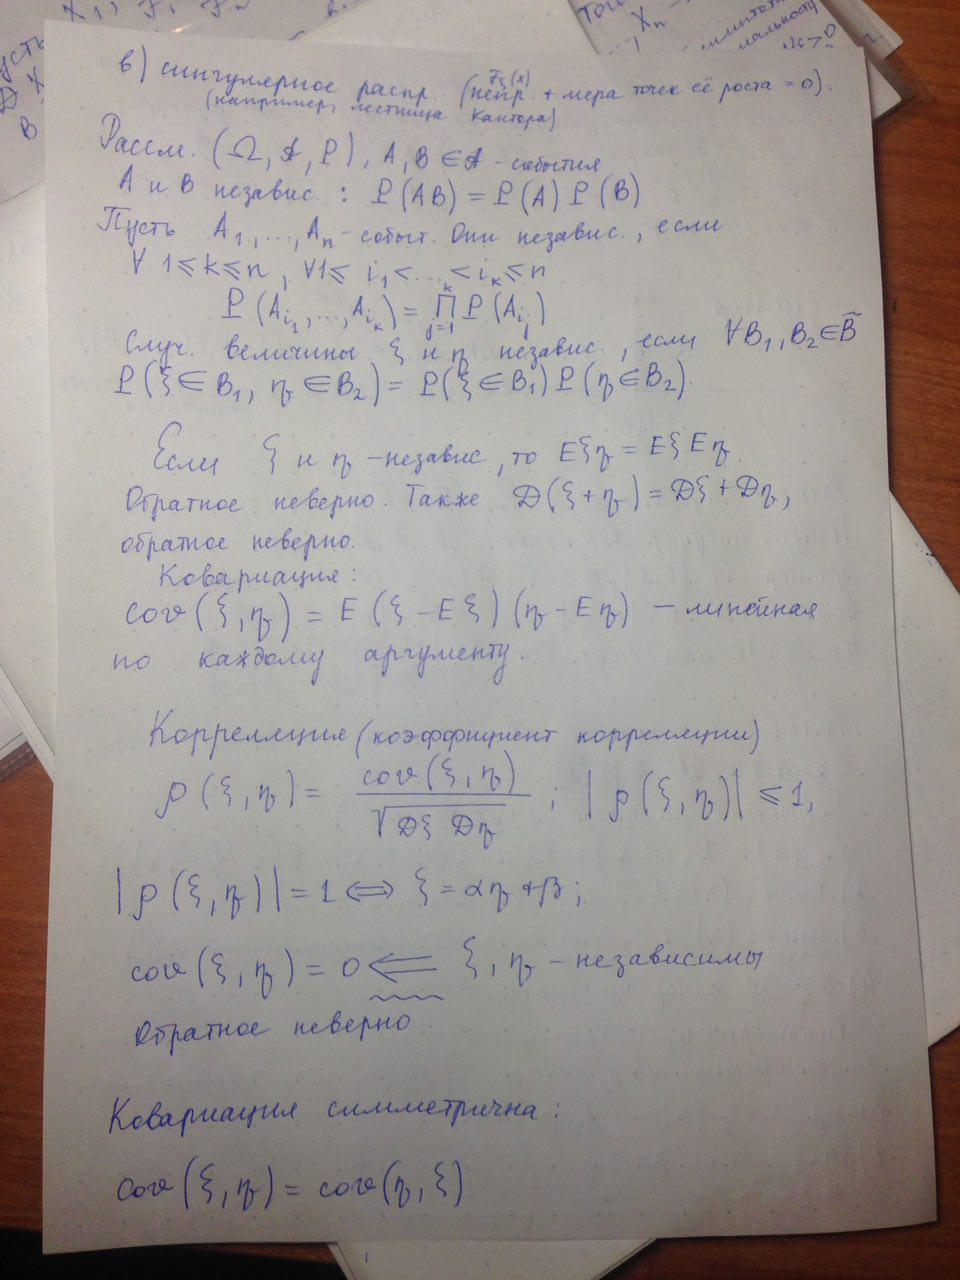 X₁,
в) сингулярное распр. (непр. + мера точек её роста = 0).
F_ξ(x)
(например, лестница Кантора)
Рассм. (Ω, 𝒜, P), A, B ∈ 𝒜 - события
A и B независ.: P(AB) = P(A) P(B)
Пусть A₁, ..., Aₙ - событ. Они независ., если
∀ 1 ≤ k ≤ n, ∀ 1 ≤ i₁ < ... < iₖ ≤ n
P(A_{i₁}, ..., A_{iₖ}) = ∏_{j=1}^{k} P(A_{i_j})
Случ. величины ξ и η независ., если ∀B₁, B₂ ∈ B̃
P(ξ ∈ B₁, η ∈ B₂) = P(ξ ∈ B₁) P(η ∈ B₂).
Если ξ и η - независ., то Eξη = Eξ Eη.
Обратное неверно. Также D(ξ + η) = Dξ + Dη,
обратное неверно.
Ковариация:
cov(ξ, η) = E(ξ - Eξ)(η - Eη) - линейная
по каждому аргументу.
Корреляция (коэффициент корреляции)
ρ(ξ, η) = cov(ξ, η) / √(Dξ Dη) ; |ρ(ξ, η)| ≤ 1,
|ρ(ξ, η)| = 1 ⟺ ξ = αη + β;
cov(ξ, η) = 0 ⟸ ξ, η - независимы
Обратное неверно
Ковариация симметрична:
cov(ξ, η) = cov(η, ξ)